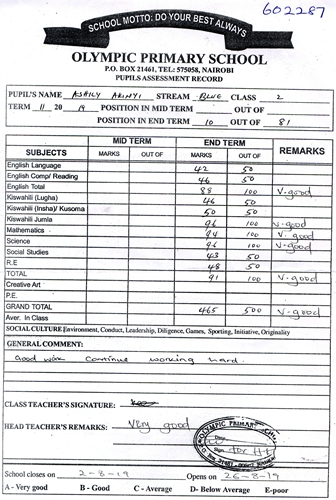 602287
SCHOOL MOTTO: DO YOUR BEST ALWAYS
OLYMPIC PRIMARY SCHOOL
P.O. BOX 21461, TEL: 575058, NAIROBI
PUPILS ASSESSMENT RECORD
PUPIL'S NAME ASHILY AKINYI STREAM BLUE CLASS 2
TERM 11 20 19 POSITION IN MID TERM OUT OF
POSITION IN END TERM 10 OUT OF 81
MID TERM END TERM
SUBJECTS MARKS OUT OF MARKS OUT OF REMARKS
English Language 42 50
English Comp/ Reading 46 50
English Total 88 100 V-good
Kiswahili (Lugha) 46 50
Kiswahili (Insha)/ Kusoma 50 50
Kiswahili Jumla 96 100 V-good
Mathematics 94 100 V. good
Science 96 100 V-good
Social Studies 43 50
R.E 48 50
TOTAL 91 100 V-good
Creative Art
P.E.
GRAND TOTAL 465 500 V-good
Aver. In Class
SOCIAL CULTURE Environment, Conduct, Leadership, Diligence, Games, Sporting, Initiative, Originality
GENERAL COMMENT:
Good work continue working hard.
CLASS TEACHER'S SIGNATURE:
HEAD TEACHER'S REMARKS: Very good
OLYMPIC PRIMARY
School closes on 2-8-19 Opens on 26-8-19
A - Very good B - Good C - Average D- Below Average E-poor